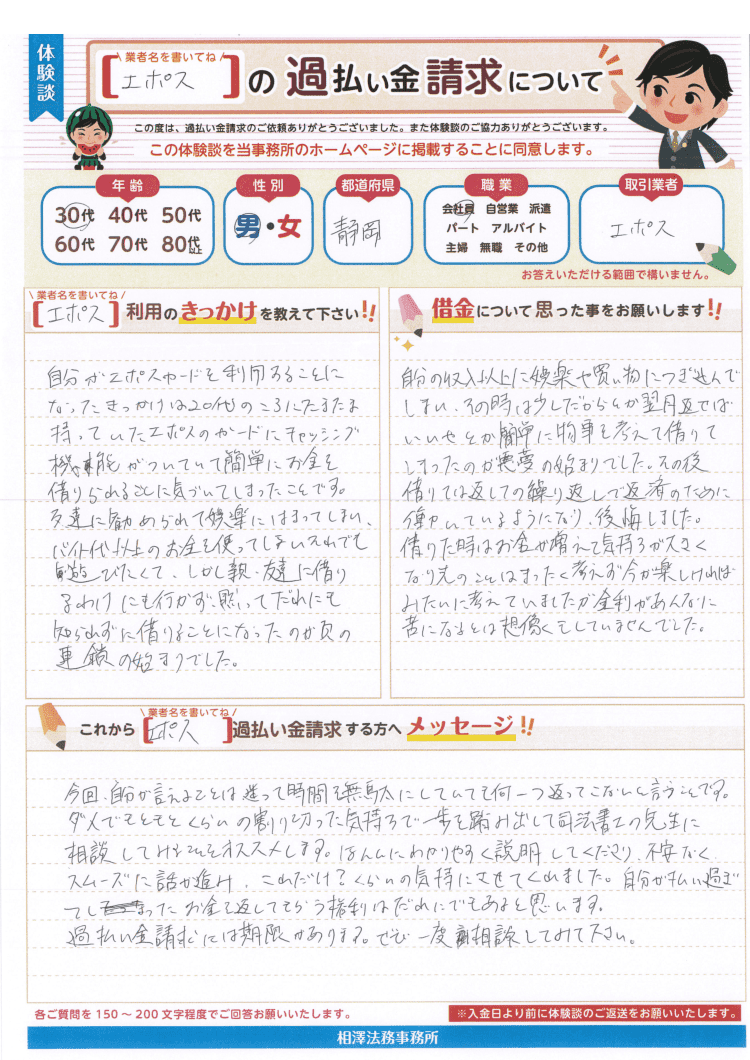 体験談
\ 業者名を書いてね /
[エポス]の過払い金請求について
この度は、過払い金請求のご依頼ありがとうございました。また体験談のご協力ありがとうございます。
この体験談を当事務所のホームページに掲載することに同意します。
年齢
30代 40代 50代
60代 70代 80代以上
性別
男・女
都道府県
静岡
職業
会社員 自営業 派遣
パート アルバイト
主婦 無職 その他
取引業者
エポス
お答えいただける範囲で構いません。
\ 業者名を書いてね /
[エポス]利用のきっかけを教えて下さい!!
自分がエポスカードを利用することに
なったきっかけは20代のころにたまたま
持っていたエポスのカードにキャッシング
機能がついていて簡単にお金を
借りられることに気づいてしまったことです。
友達に勧められて娯楽にはまってしまい、
バイト代以上のお金を使ってしまいそれでも
遊びたくて、しかし親、友達に借り
るわけにも行かず、黙ってだれにも
知られずに借りることになったのが負の
連鎖の始まりでした。
借金について思った事をお願いします!!
自分の収入以上に娯楽や買い物につぎ込んで
しまい、その時は少しだからとか翌月返せば
いいやとか簡単に物事を考えて借りて
しまったのが悪夢の始まりでした。その後
借りては返しての繰り返しで返済のために
働いているようになり、後悔しました。
借りた時はお金が増えて気持ちが大きく
なり先のことはまったく考えず今が楽しければ
みたいに考えていましたが金利があんなに
苦になるとは想像もしていませんでした。
\ 業者名を書いてね /
これから[エポス]過払い金請求する方へメッセージ!!
今回、自分が言えることは迷って時間を無駄にしていても何一つ返ってこないと言うことです。
ダメでもともとくらいの割り切った気持ちで一歩を踏み出して司法書士の先生に
相談してみることをオススメします。ほんとにわかりやすく説明してくださり、不安なく
スムーズに話が進み、これだけ?くらいの気持にさせてくれました。自分が払い過ぎ
てしまったお金を返してもらう権利はだれにでもあると思います。
過払い金請求には期限があります。ぜひ一度相談してみて下さい。
各ご質問を150～200文字程度でご回答お願いいたします。
※入金日より前に体験談のご返送をお願いいたします。
相澤法務事務所